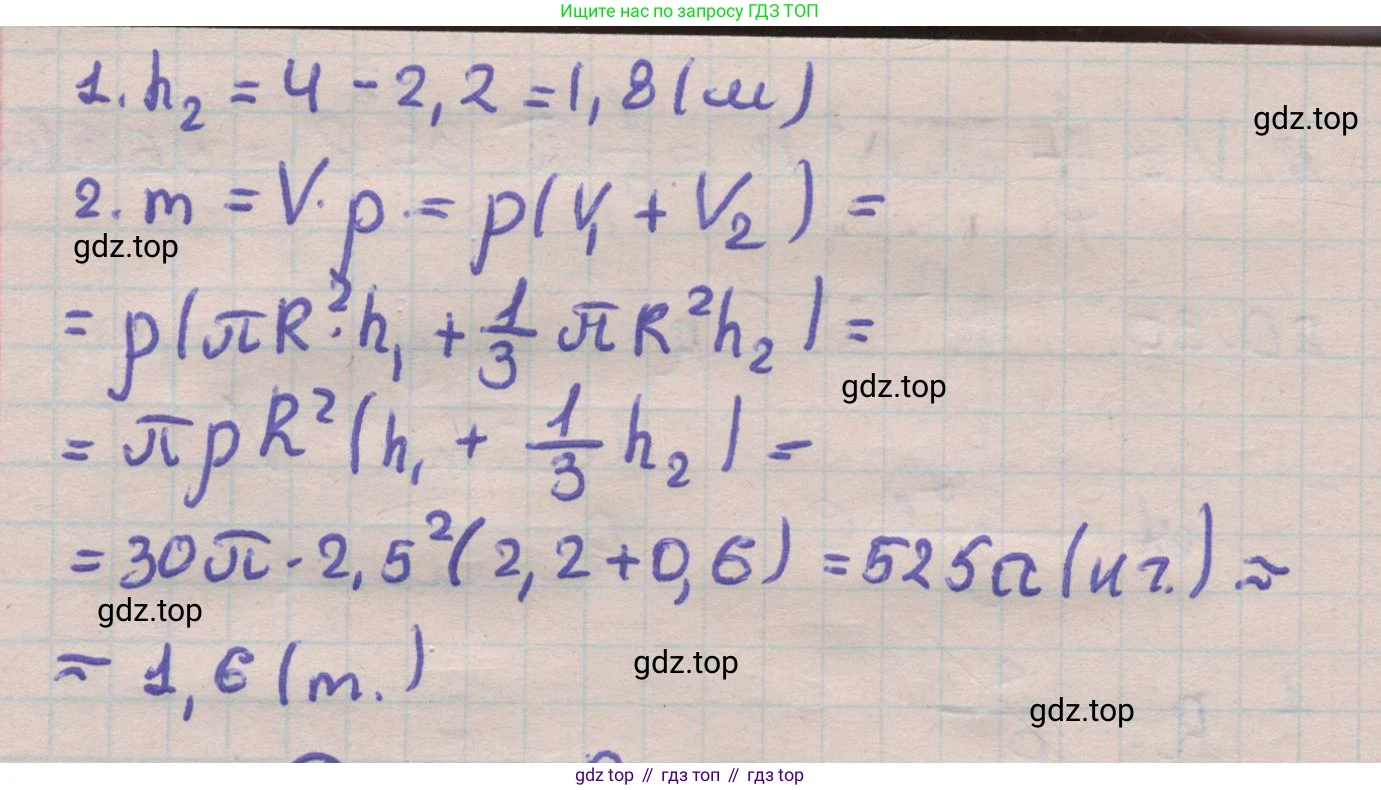 Ищите нас по запросу ГДЗ ТОП
1. h₂ = 4 - 2,2 = 1,8 (м)
gdz.top
2. m = V · p = p(V₁ + V₂) =
gdz.top
= p(πR² · h₁ + 1/3 πR²h₂) =
gdz.top
= πpR²(h₁ + 1/3 h₂) =
= 30π · 2,5²(2,2 + 0,6) = 525π (кг.) ≈
gdz.top
≈ 1,6 (т.)
gdz.top
gdz.top
gdz top // гдз топ // gdz top